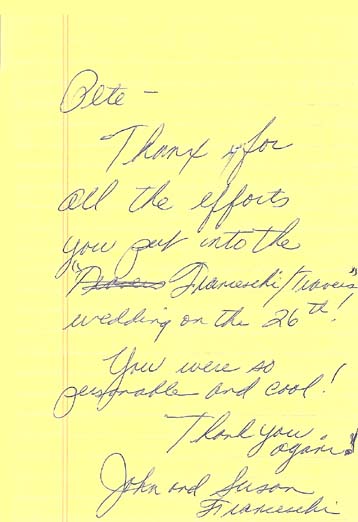 Pete -
Thanx for
all the efforts
you put into the
"Travers Franceschi/Travers"
wedding on the 26th!
You were so
personable and cool!
Thank you
again!
John and Susan
Franceschi